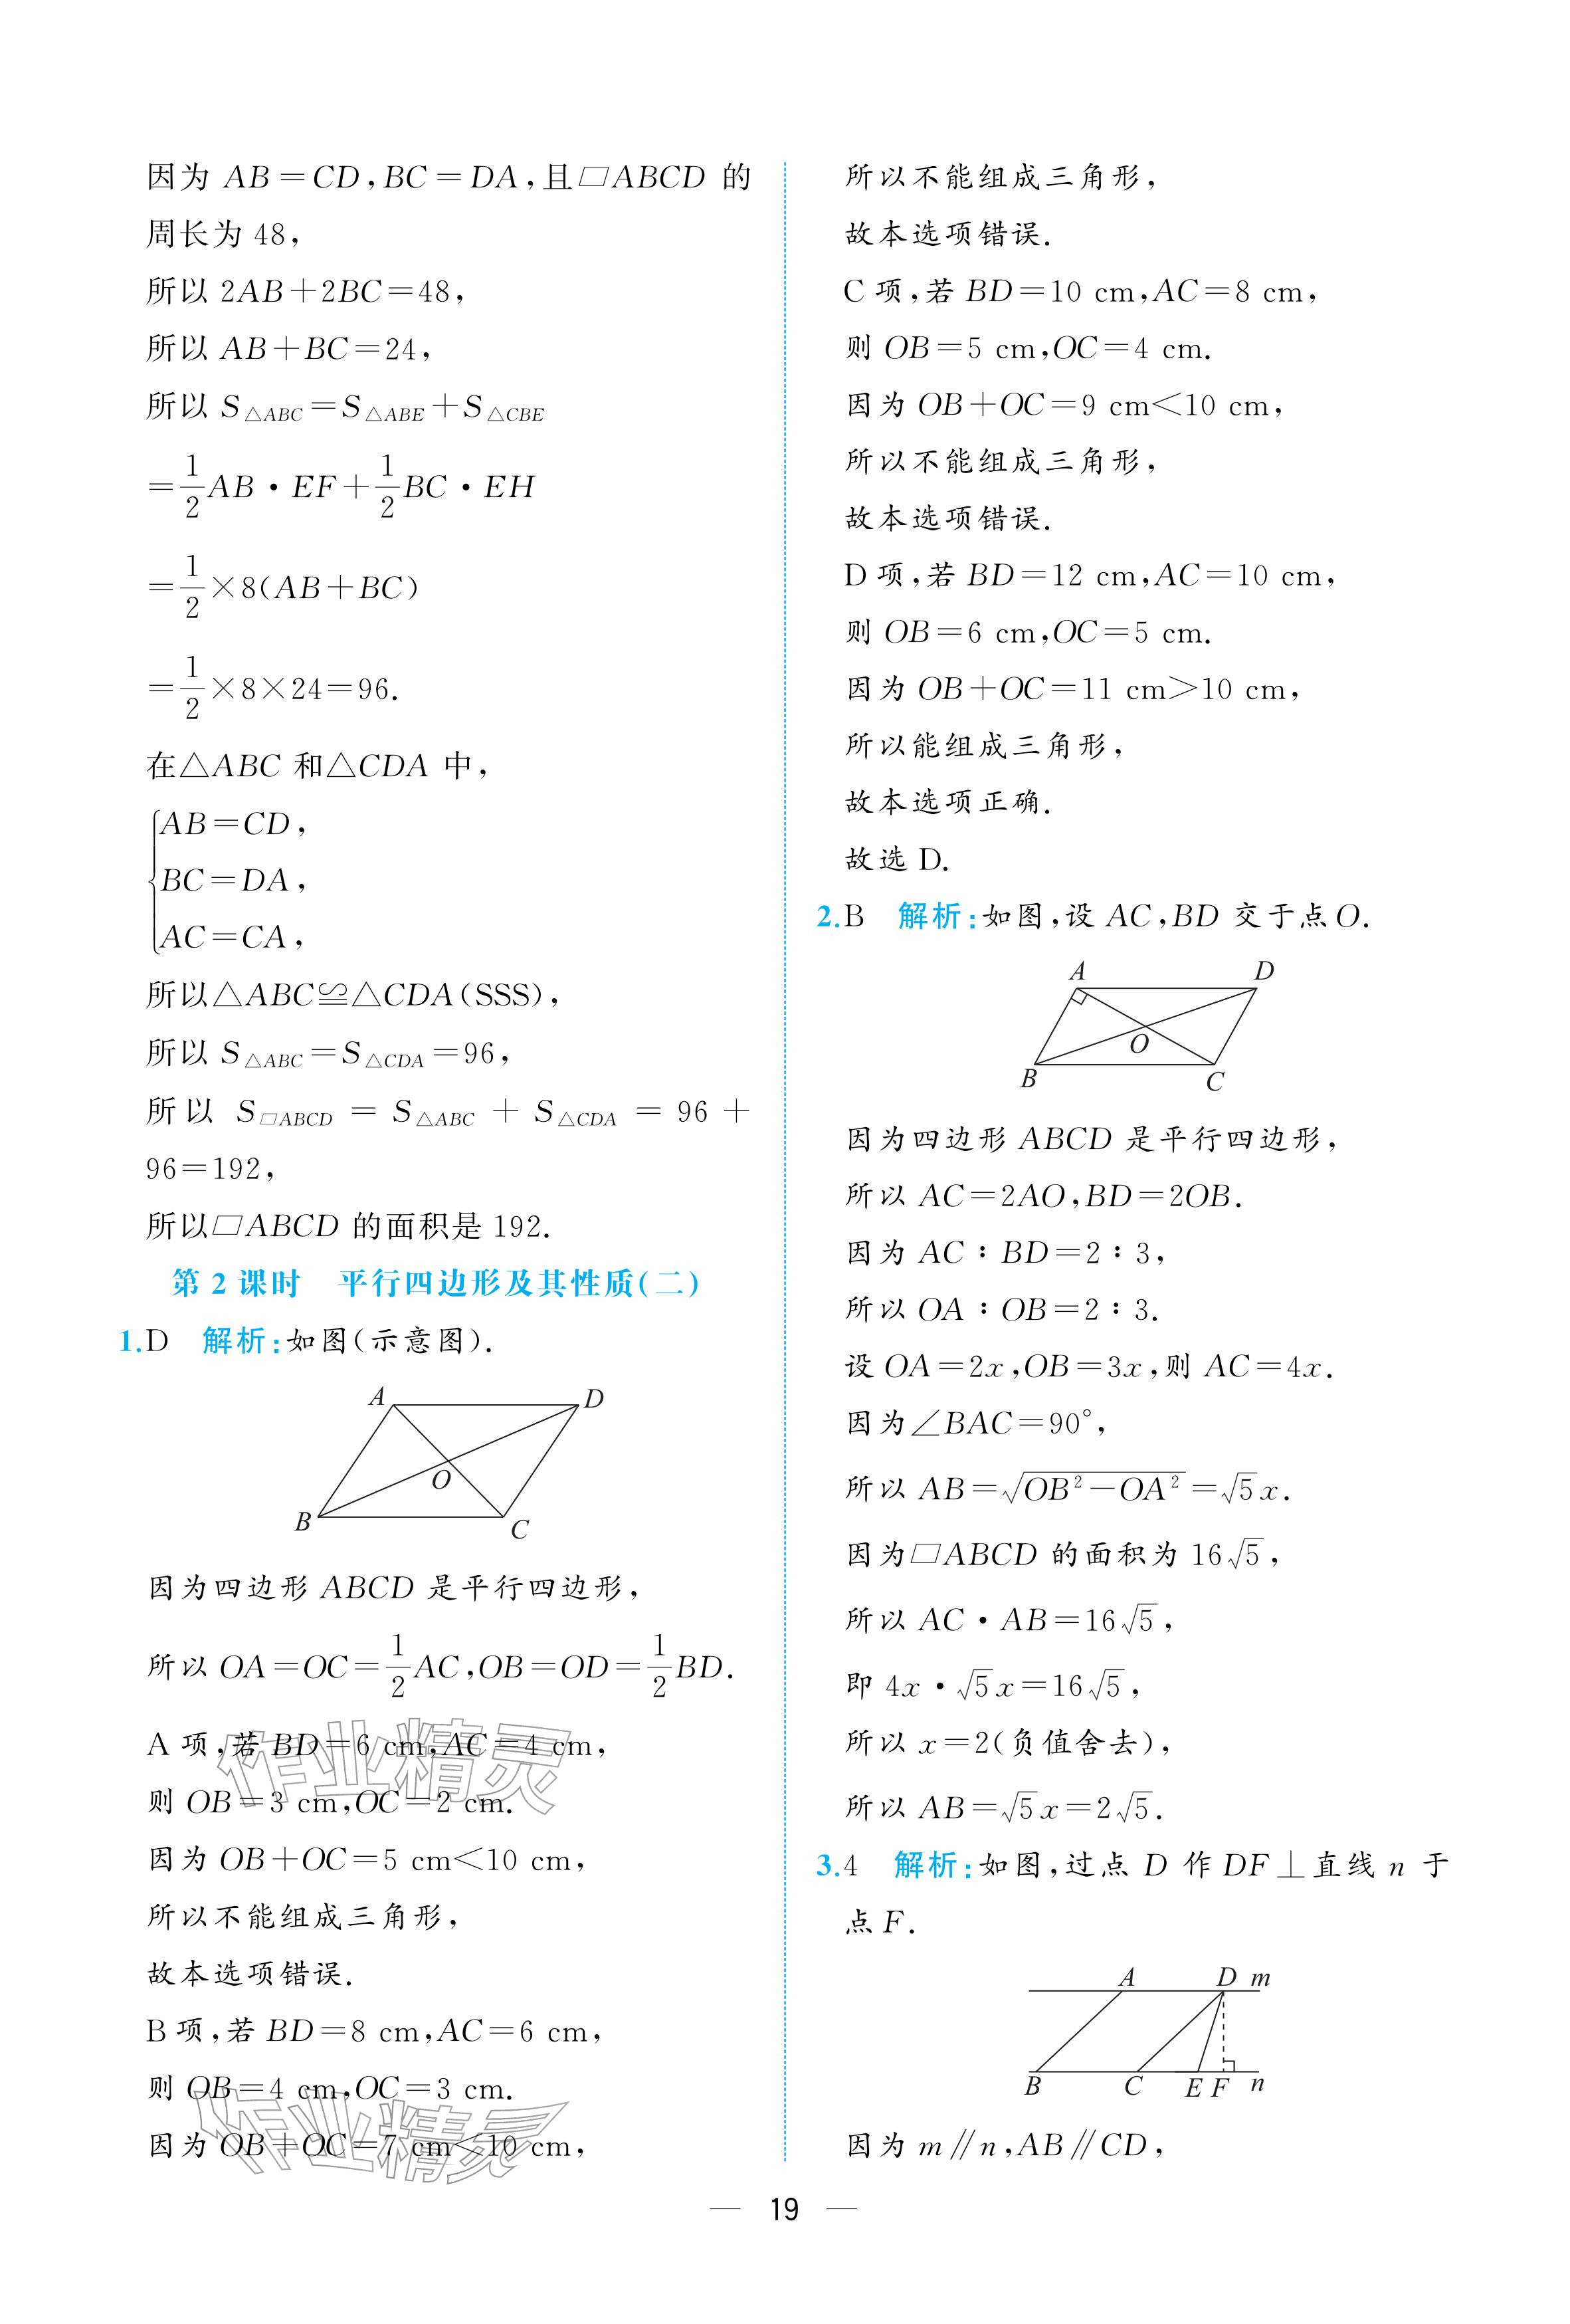 因为 AB=CD,BC=DA,且□ABCD 的
周长为 48,
所以 2AB+2BC=48,
所以 AB+BC=24,
所以 S△ABC=S△ABE+S△CBE
=1/2AB·EF+1/2BC·EH
=1/2×8(AB+BC)
=1/2×8×24=96.
在△ABC 和△CDA 中,
AB=CD,
BC=DA,
AC=CA,
所以△ABC≌△CDA(SSS),
所以 S△ABC=S△CDA=96,
所以 S□ABCD = S△ABC + S△CDA = 96 +
96=192,
所以□ABCD 的面积是 192.
第 2 课时 平行四边形及其性质(二)
1.D 解析:如图(示意图).
A D
O
B C
因为四边形 ABCD 是平行四边形,
所以 OA=OC=1/2AC,OB=OD=1/2BD.
A 项,若 BD=6 cm,AC=4 cm,
则 OB=3 cm,OC=2 cm.
因为 OB+OC=5 cm<10 cm,
所以不能组成三角形,
故本选项错误.
B 项,若 BD=8 cm,AC=6 cm,
则 OB=4 cm,OC=3 cm.
因为 OB+OC=7 cm<10 cm,
作业精灵
作业精灵
所以不能组成三角形,
故本选项错误.
C 项,若 BD=10 cm,AC=8 cm,
则 OB=5 cm,OC=4 cm.
因为 OB+OC=9 cm<10 cm,
所以不能组成三角形,
故本选项错误.
D 项,若 BD=12 cm,AC=10 cm,
则 OB=6 cm,OC=5 cm.
因为 OB+OC=11 cm>10 cm,
所以能组成三角形,
故本选项正确.
故选 D.
2.B 解析:如图,设 AC,BD 交于点O.
A D
O
B C
因为四边形 ABCD 是平行四边形,
所以 AC=2AO,BD=2OB.
因为 AC∶BD=2∶3,
所以 OA∶OB=2∶3.
设 OA=2x,OB=3x,则 AC=4x.
因为∠BAC=90°,
所以 AB=√(OB²-OA²)=√5x.
因为□ABCD 的面积为 16√5,
所以 AC·AB=16√5,
即 4x·√5x=16√5,
所以 x=2(负值舍去),
所以 AB=√5x=2√5.
3.4 解析:如图,过点 D 作 DF⊥直线 n 于
点 F.
A D m
B C E F n
因为 m∥n,AB∥CD,
— 19 —